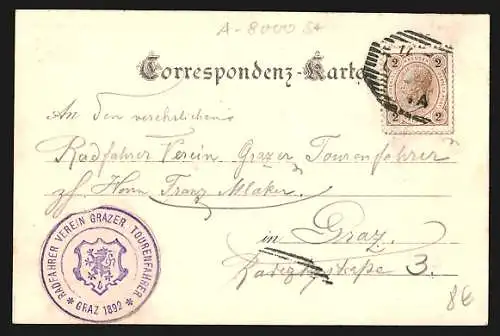 A-8000 St
Correspondenz-Karte
2 2
A
An den verehrlichen
Radfahrer Verein Grazer Tourenfahrer
zH Herrn Franz Mlaker
in Graz
Radetzkystraße 3.
RADFAHRER VEREIN GRAZER TOURENFAHRER
* GRAZ 1892 *
8€